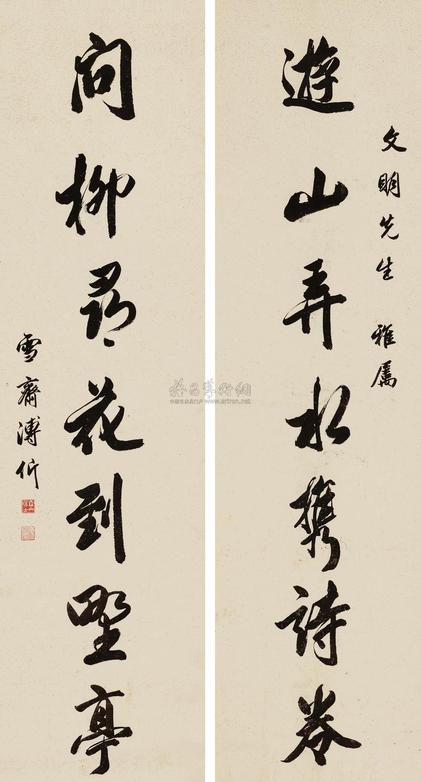 文明先生 雅属
遊山弄水携詩卷
问柳尋花到野亭
雪齋溥伒